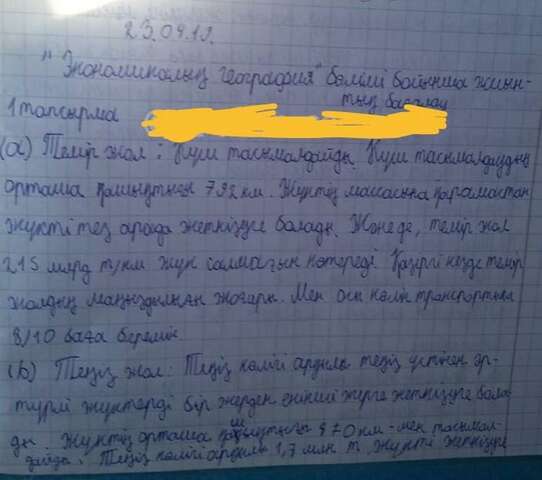 23.04.12.
"Экономикалық география" бөлімі бойынша жиын-
тық бағалау
1 тапсырма
(a) Темір жол: Күш тасымалдайды. Күш тасымалдаудың
орташа қашықтығы 792 км. Жүктің массасына қарамастан
жүкті тез арада жеткізуге болады. Және де, темір жол
215 млрд т/км жүк салмағын көтереді. Қазіргі кезде темір
жолдың маңыздылығы жоғары. Мен осы көлік транспортына
8/10 баға беремін.
(b) Теңіз жол: Теңіз көлігі арқылы теңіз үстінен әр-
түрлі жүктерді бір жерден екінші жерге жеткізуге бола-
ды. Жүктің орташа қашықтығы 970 км-мен тасымал-
дайды. Теңіз көлігі арқылы 1,7 млн т жүкті жеткізуге